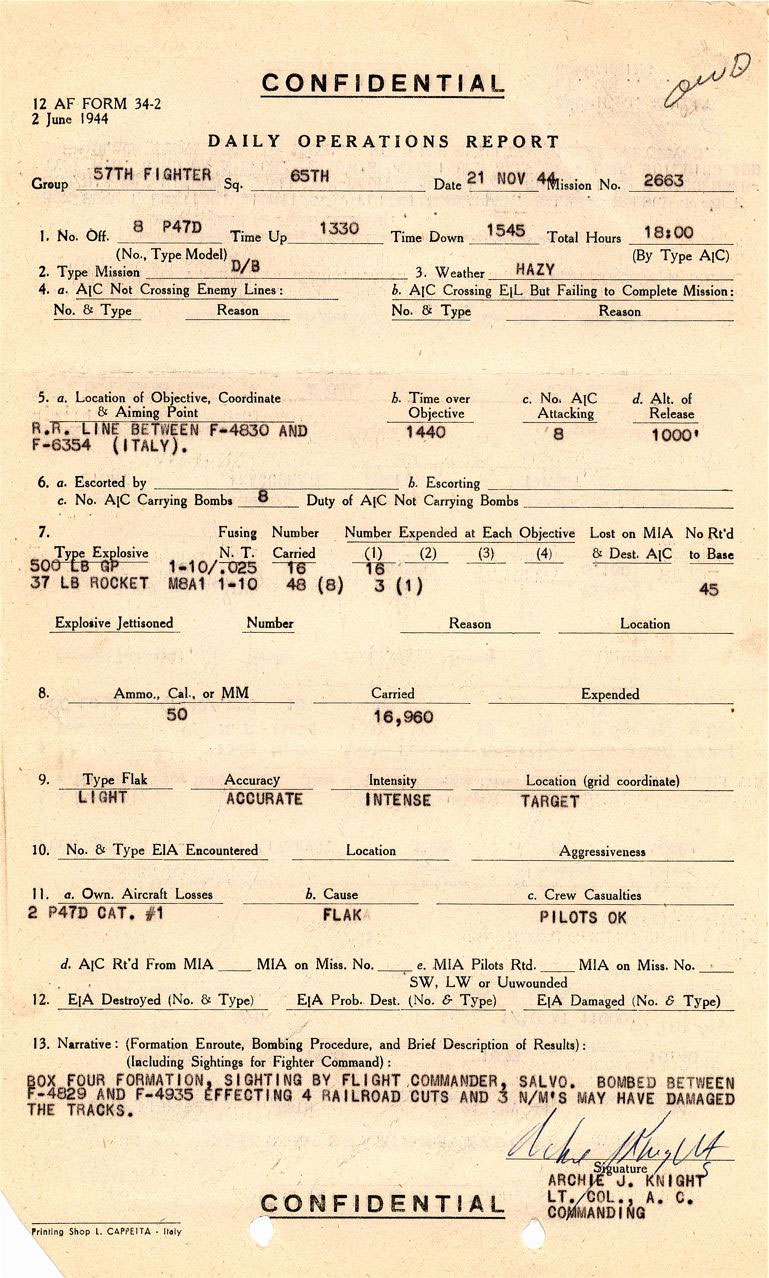 CONFIDENTIAL
12 AF FORM 34-2
2 June 1944
DAILY OPERATIONS REPORT
Group 57TH FIGHTER Sq. 65TH Date 21 NOV 44 Mission No. 2663
1. No. Off. 8 P47D Time Up 1330 Time Down 1545 Total Hours 18:00
(No., Type Model) (By Type A|C)
2. Type Mission D/B 3. Weather HAZY
4. a. A|C Not Crossing Enemy Lines: b. A|C Crossing E|L But Failing to Complete Mission:
No. & Type Reason No. & Type Reason
5. a. Location of Objective, Coordinate b. Time over c. No. A|C d. Alt. of
& Aiming Point Objective Attacking Release
R.R. LINE BETWEEN F-4830 AND 1440 8 1000'
F-6354 (ITALY).
6. a. Escorted by b. Escorting
c. No. A|C Carrying Bombs 8 Duty of A|C Not Carrying Bombs
7. Fusing Number Number Expended at Each Objective Lost on MIA No Rt'd
Type Explosive N. T. Carried (1) (2) (3) (4) & Dest. A|C to Base
500 LB GP 1-10/.025 16 16
37 LB ROCKET M8A1 1-10 48 (8) 3 (1) 45
Explosive Jettisoned Number Reason Location
8. Ammo., Cal., or MM Carried Expended
50 16,960
9. Type Flak Accuracy Intensity Location (grid coordinate)
LIGHT ACCURATE INTENSE TARGET
10. No. & Type E|A Encountered Location Aggressiveness
11. a. Own. Aircraft Losses b. Cause c. Crew Casualties
2 P47D CAT. #1 FLAK PILOTS OK
d. A|C Rt'd From MIA MIA on Miss. No. e. MIA Pilots Rtd. MIA on Miss. No.
SW, LW or Uuwounded
12. E|A Destroyed (No. & Type) E|A Prob. Dest. (No. & Type) E|A Damaged (No. & Type)
13. Narrative: (Formation Enroute, Bombing Procedure, and Brief Description of Results):
(Including Sightings for Fighter Command):
BOX FOUR FORMATION, SIGHTING BY FLIGHT COMMANDER, SALVO. BOMBED BETWEEN
F-4829 AND F-4935 EFFECTING 4 RAILROAD CUTS AND 3 N/M'S MAY HAVE DAMAGED
THE TRACKS.
Archie J Knight
Signature
ARCHIE J. KNIGHT
LT. COL., A. C.
COMMANDING
CONFIDENTIAL
Printing Shop L. CAPPEITA - Italy